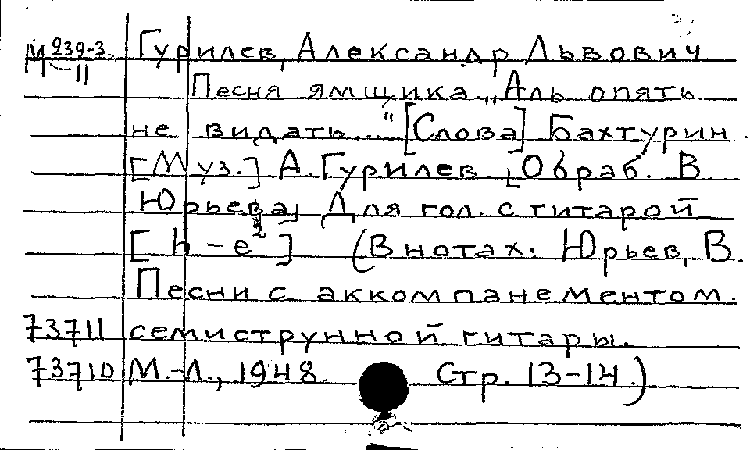 М 239-3 Гурилев, Александр Львович
11
Песня ямщика „Аль опять
не видать..." [Слова] Бахтурин.
[Муз.] А. Гурилев [Обраб. В.
Юрьева] Для гол. с гитарой
[h - e²] (В нотах: Юрьев, В.
Песни с аккомпанементом.
73711 семиструнной гитары.
73710 М.-Л., 1948. Стр. 13-14.)